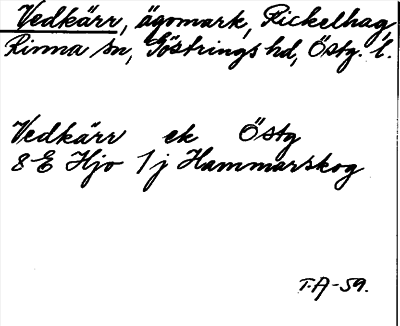 Vedkärr, ägomark, Rickelhag,
Rinna sn, Göstrings hd, Östg. l.
Vedkärr ek Östg
8 E Hjo 1 j Hammarskog
T.A-59.